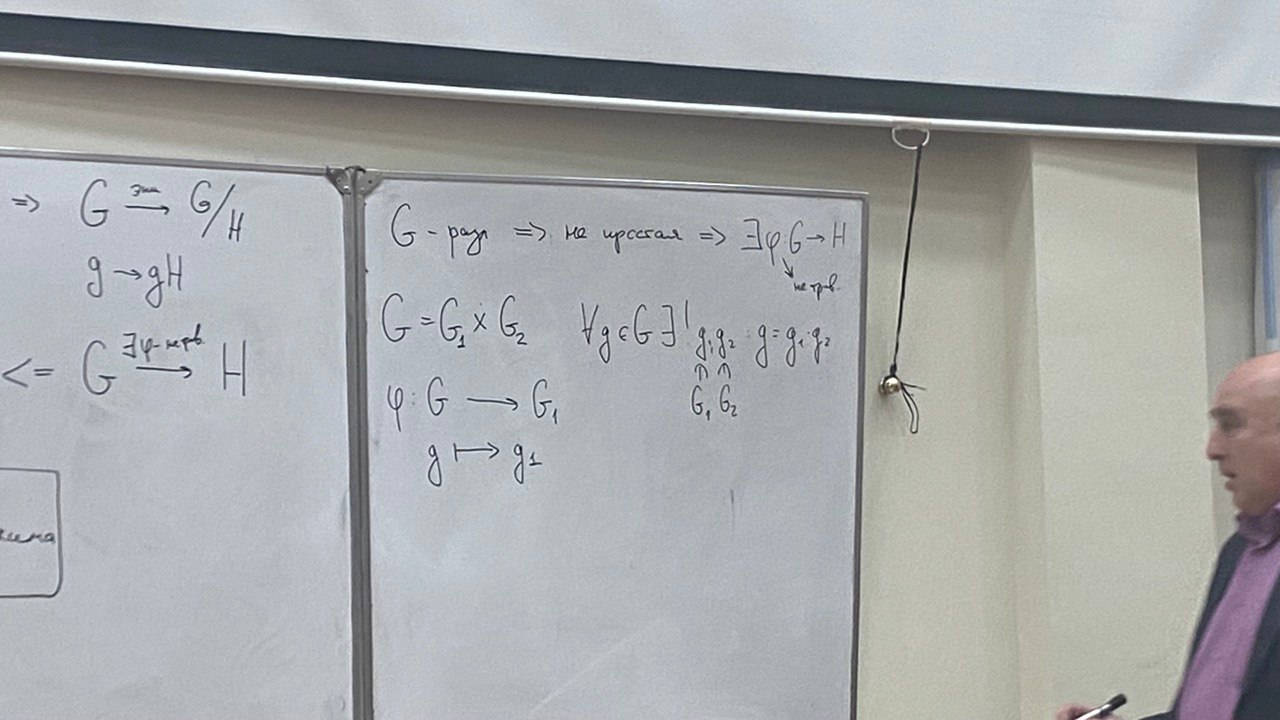 => G эпи → G/H
g → gH
<= G ∃φ-нетрив. → H
G - разл => не простая => ∃φ: G → H
нетрив.
G = G₁ × G₂ ∀g ∈ G ∃! g₁, g₂ : g = g₁·g₂
G₁ G₂
φ: G ⟶ G₁
g ⟼ g₁